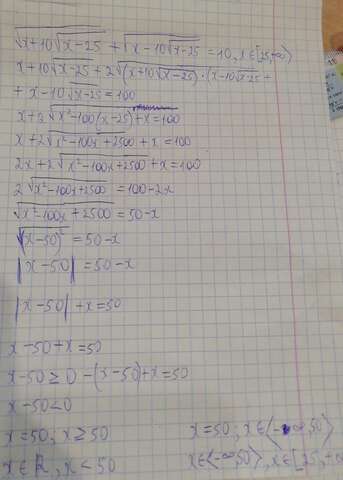 √(x+10√(x-25)) + √(x-10√(x-25)) = 10, x ∈ [25, +∞)
x+10√(x-25) + 2√((x+10√(x-25)) · (x-10√(x-25)) +
+ x-10√(x-25) = 100
x+2√(x²-100(x-25)) + x = 100
x+2√(x²-100x+2500) + x = 100
2x+2√(x²-100x+2500 + x = 100
2√(x²-100x+2500) = 100-2x
√(x²-100x+2500) = 50-x
√(x-50)² = 50-x
|x-50| = 50-x
|x-50| + x = 50
x-50+x = 50
x-50 ≥ 0 -(x-50)+x = 50
x-50 < 0
x = 50; x ≥ 50 x = 50; x ∈ (-∞, 50)
x ∈ R, x < 50 x ∈ (-∞, 50), x ∈ [25, +∞